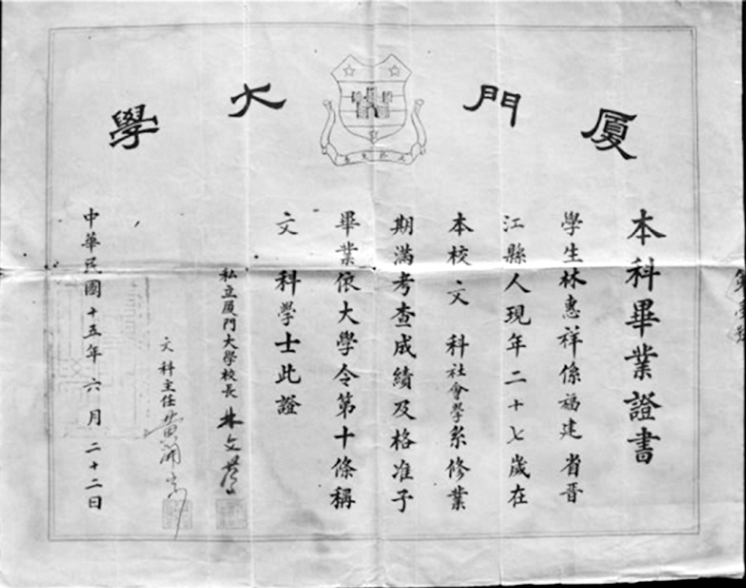 廈門大學
本科畢業證書
學生林惠祥係福建省晉
江縣人現年二十七歲在
本校文科社會學系修業
期滿考查成績及格准予
畢業依大學令第十條稱
文科學士此證
私立廈門大學校長林文慶
文科主任黃開宗
中華民國十五年六月二十二日